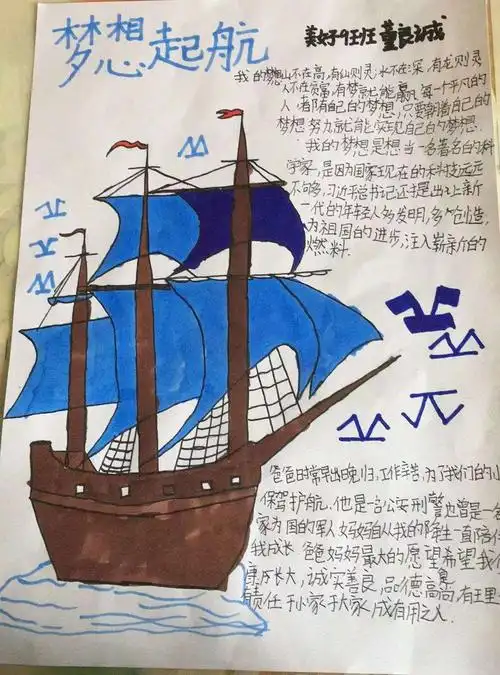 梦想起航
美好9班班 董良诚
我的梦想山不在高,有仙则灵,水不在深,有龙则灵
人不在贫富,有梦就能赢,每一个平凡的
人,都有自己的梦想,只要朝着自己的
梦想努力就能实现自己的梦想.
我的梦想是想当一名著名的科
学家,是因为国家现在的科技远远
不够,习近平总书记还提出让新
一代的年轻人多发明,多创造,
为祖国的进步,注入崭新的
燃料.
爸爸日常早出晚归,工作辛苦,为了我们的小
保驾护航,他是一名公安刑警也曾是一名
家为国的军人妈妈自从我的降生一直陪伴
我成长 爸爸妈妈最大的愿望希望我们
康历长大,诚实善良,品德高尚,有
责任于小家于大家,成有用之人.